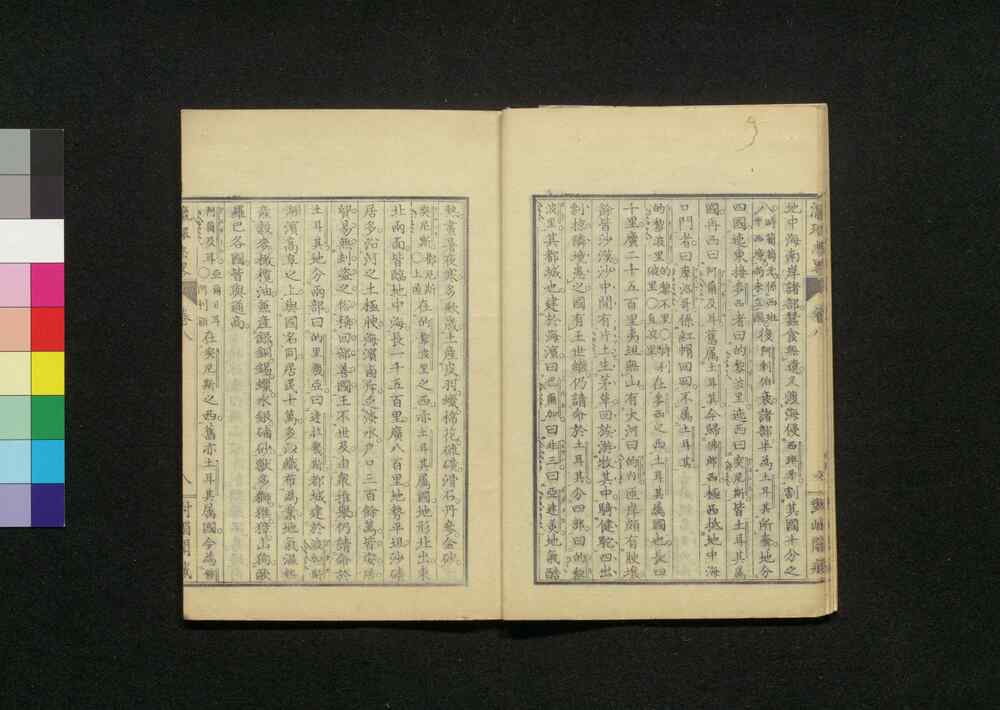 瀛環志畧 卷八
地中海南岸諸部蠶食無遺又渡海侵西班牙割其國十分之
八時葡萄牙係西班牙西境尚未立國後阿剌伯衰諸部半為土耳其所奪地分
四國迤東接麥西者曰的黎波里迤西曰突尼斯皆土耳其屬
國再西曰阿爾及耳舊屬土耳其今歸佛郎西極西抵地中海
口門者曰摩洛哥係紅帽回回不屬土耳其
的黎波里在麥西之西土耳其屬國也長曰
千里廣二十五百里夷坦無山有大河曰的的匝岸頗有腴壤
餘皆沙漠沙中間有片土生茅草回族游牧其中騎健駝四出
剽掠隣境患之國有王世繼仍請命於土耳其分四部曰的黎
波里其都城也建於海濱曰巴爾加曰非三曰亞達美地氣酷
熱晝暑夜寒多歉歲土產皮羽蠟棉花硫磺滑石丹參金砂
突尼斯在的黎波里之西亦土耳其屬國地形北出東
北兩面皆臨地中海長一千五百里廣八百里地勢平坦沙磧
居多沿河之土極腴海濱鹵斥乏淡水戶口三百餘萬皆安居
貿易無剽盜之俗稱回部善國王不世及由衆推舉仍請命於
土耳其地分兩部曰的里幾亞曰達拉幾斯都城建於
海濱高阜之上與國名同居民十萬多以織布為業地氣溫和
產穀麥橄欖油兼產銀銅錫蠟水銀硇砂獸多獅獐山狗歐
羅巴各國皆與通商
阿爾及耳在突尼斯之西舊亦土耳其屬國今為佛
瀛環志畧 卷八
八
對嵋閣藏